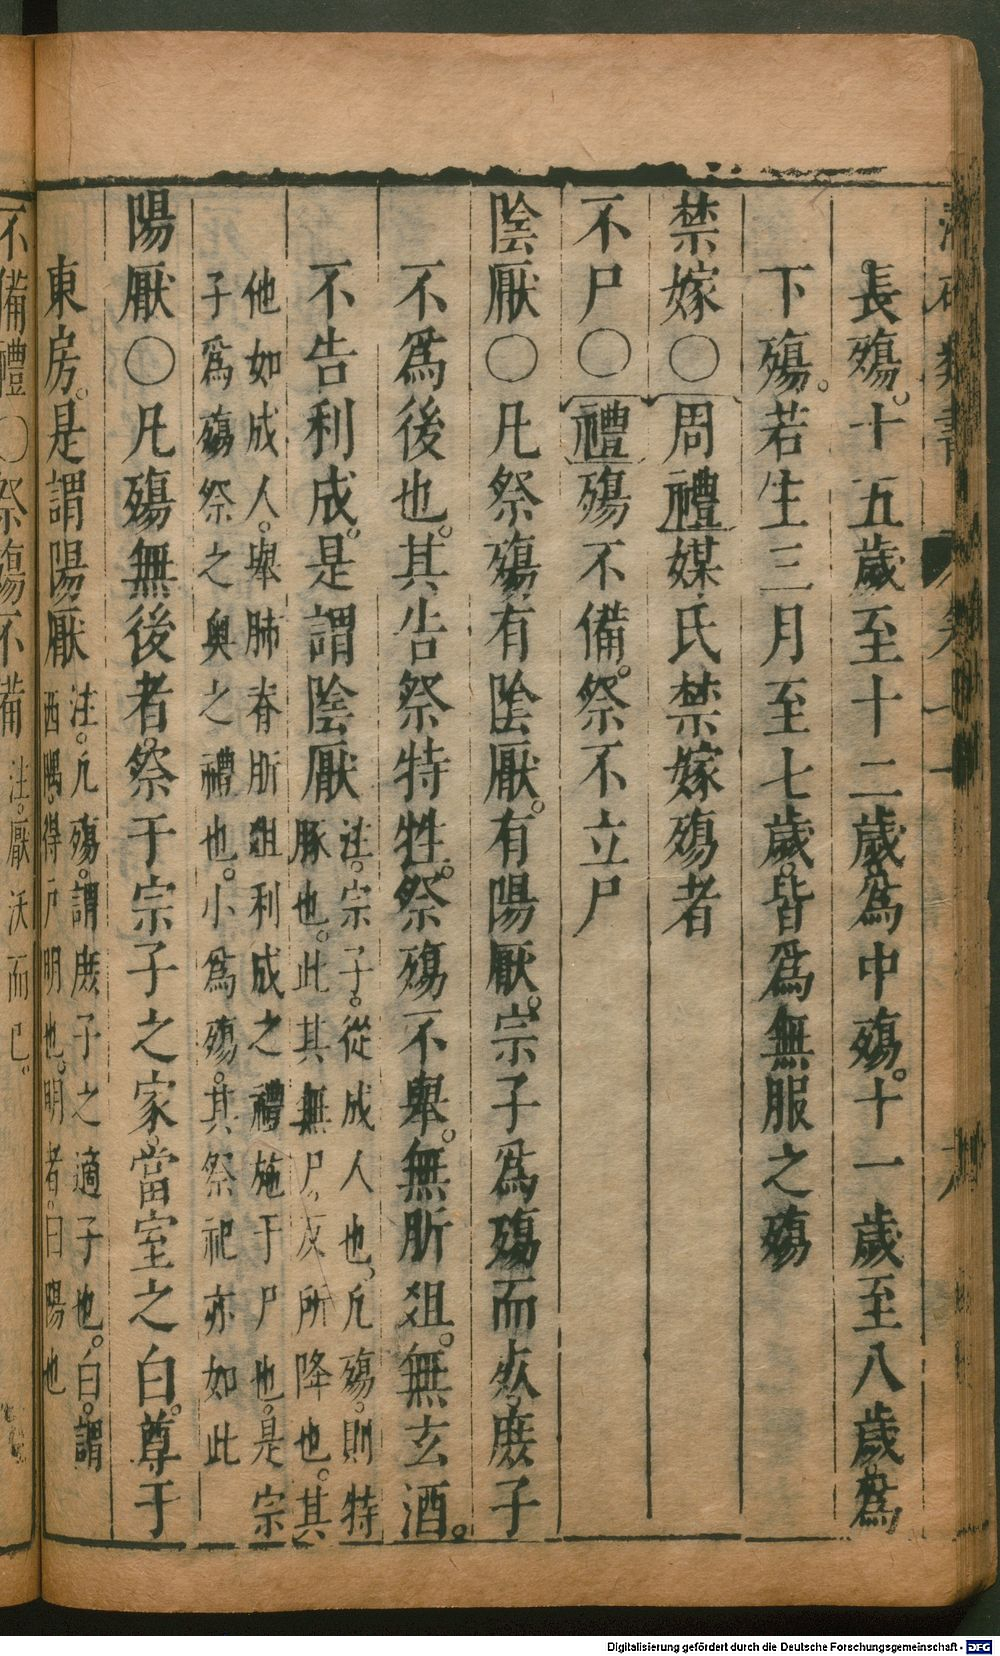 長殤。十五歲至十二歲。爲中殤。十一歲至八歲。爲
下殤。若生三月至七歲。皆爲無服之殤
禁嫁〇周禮媒氏禁嫁殤者
不尸〇禮殤不備。祭不立尸
陰厭〇凡祭殤有陰厭。有陽厭。宗子爲殤而死。庶子
不爲後也。其告祭特牲。祭殤不舉。無肵爼。無玄酒。
不告利成。是謂陰厭
注。宗子。從成人也。凡殤。則特
豚也。此其無尸。及所降也。其
他如成人。舉肺脊肵爼利成之禮施于尸也。是宗
子爲殤祭之奥之禮也。小爲殤。其祭祀亦如此
陽厭〇凡殤無後者。祭于宗子之家。當室之白。尊于
東房。是謂陽厭
注。凡殤。謂庶子之適子也。白。謂
西隅。得戸明也。明者。曰陽也
不備禮〇祭殤不備
注。厭沃而已。
Digitalisierung gefördert durch die Deutsche Forschungsgemeinschaft - DFG